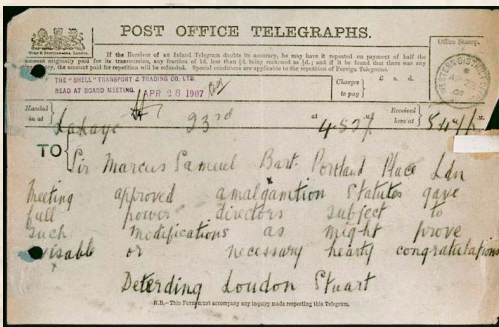 POST OFFICE TELEGRAPHS.
If the Receiver of an Inland Telegram doubts its accuracy, he may have it repeated on payment of half the
amount originally paid for its transmission, any fraction of 1d. less than ½d. being reckoned as ½d.; and if it be found that there was any
inaccuracy, the amount paid for repetition will be refunded. Special conditions are applicable to the repetition of Foreign Telegrams.
Office Stamp.
THE "SHELL" TRANSPORT & TRADING CO. LTD.
READ AT BOARD MEETING. APR 26 1907
Charges to pay } £ s. d.
WESTERN DISTRICT
Handed in at } Lahaye 23rd 4.52 Received here at }
TO { Sir Marcus Samuel Bart. Portland Place Ldn
Meeting approved amalgamtion Statutes gave
full power directors subject to
such modifications as might prove
visable or necessary hearty congratulations
Deterding Loudon Stuart
N.B.—This Form must accompany any inquiry made respecting this Telegram.